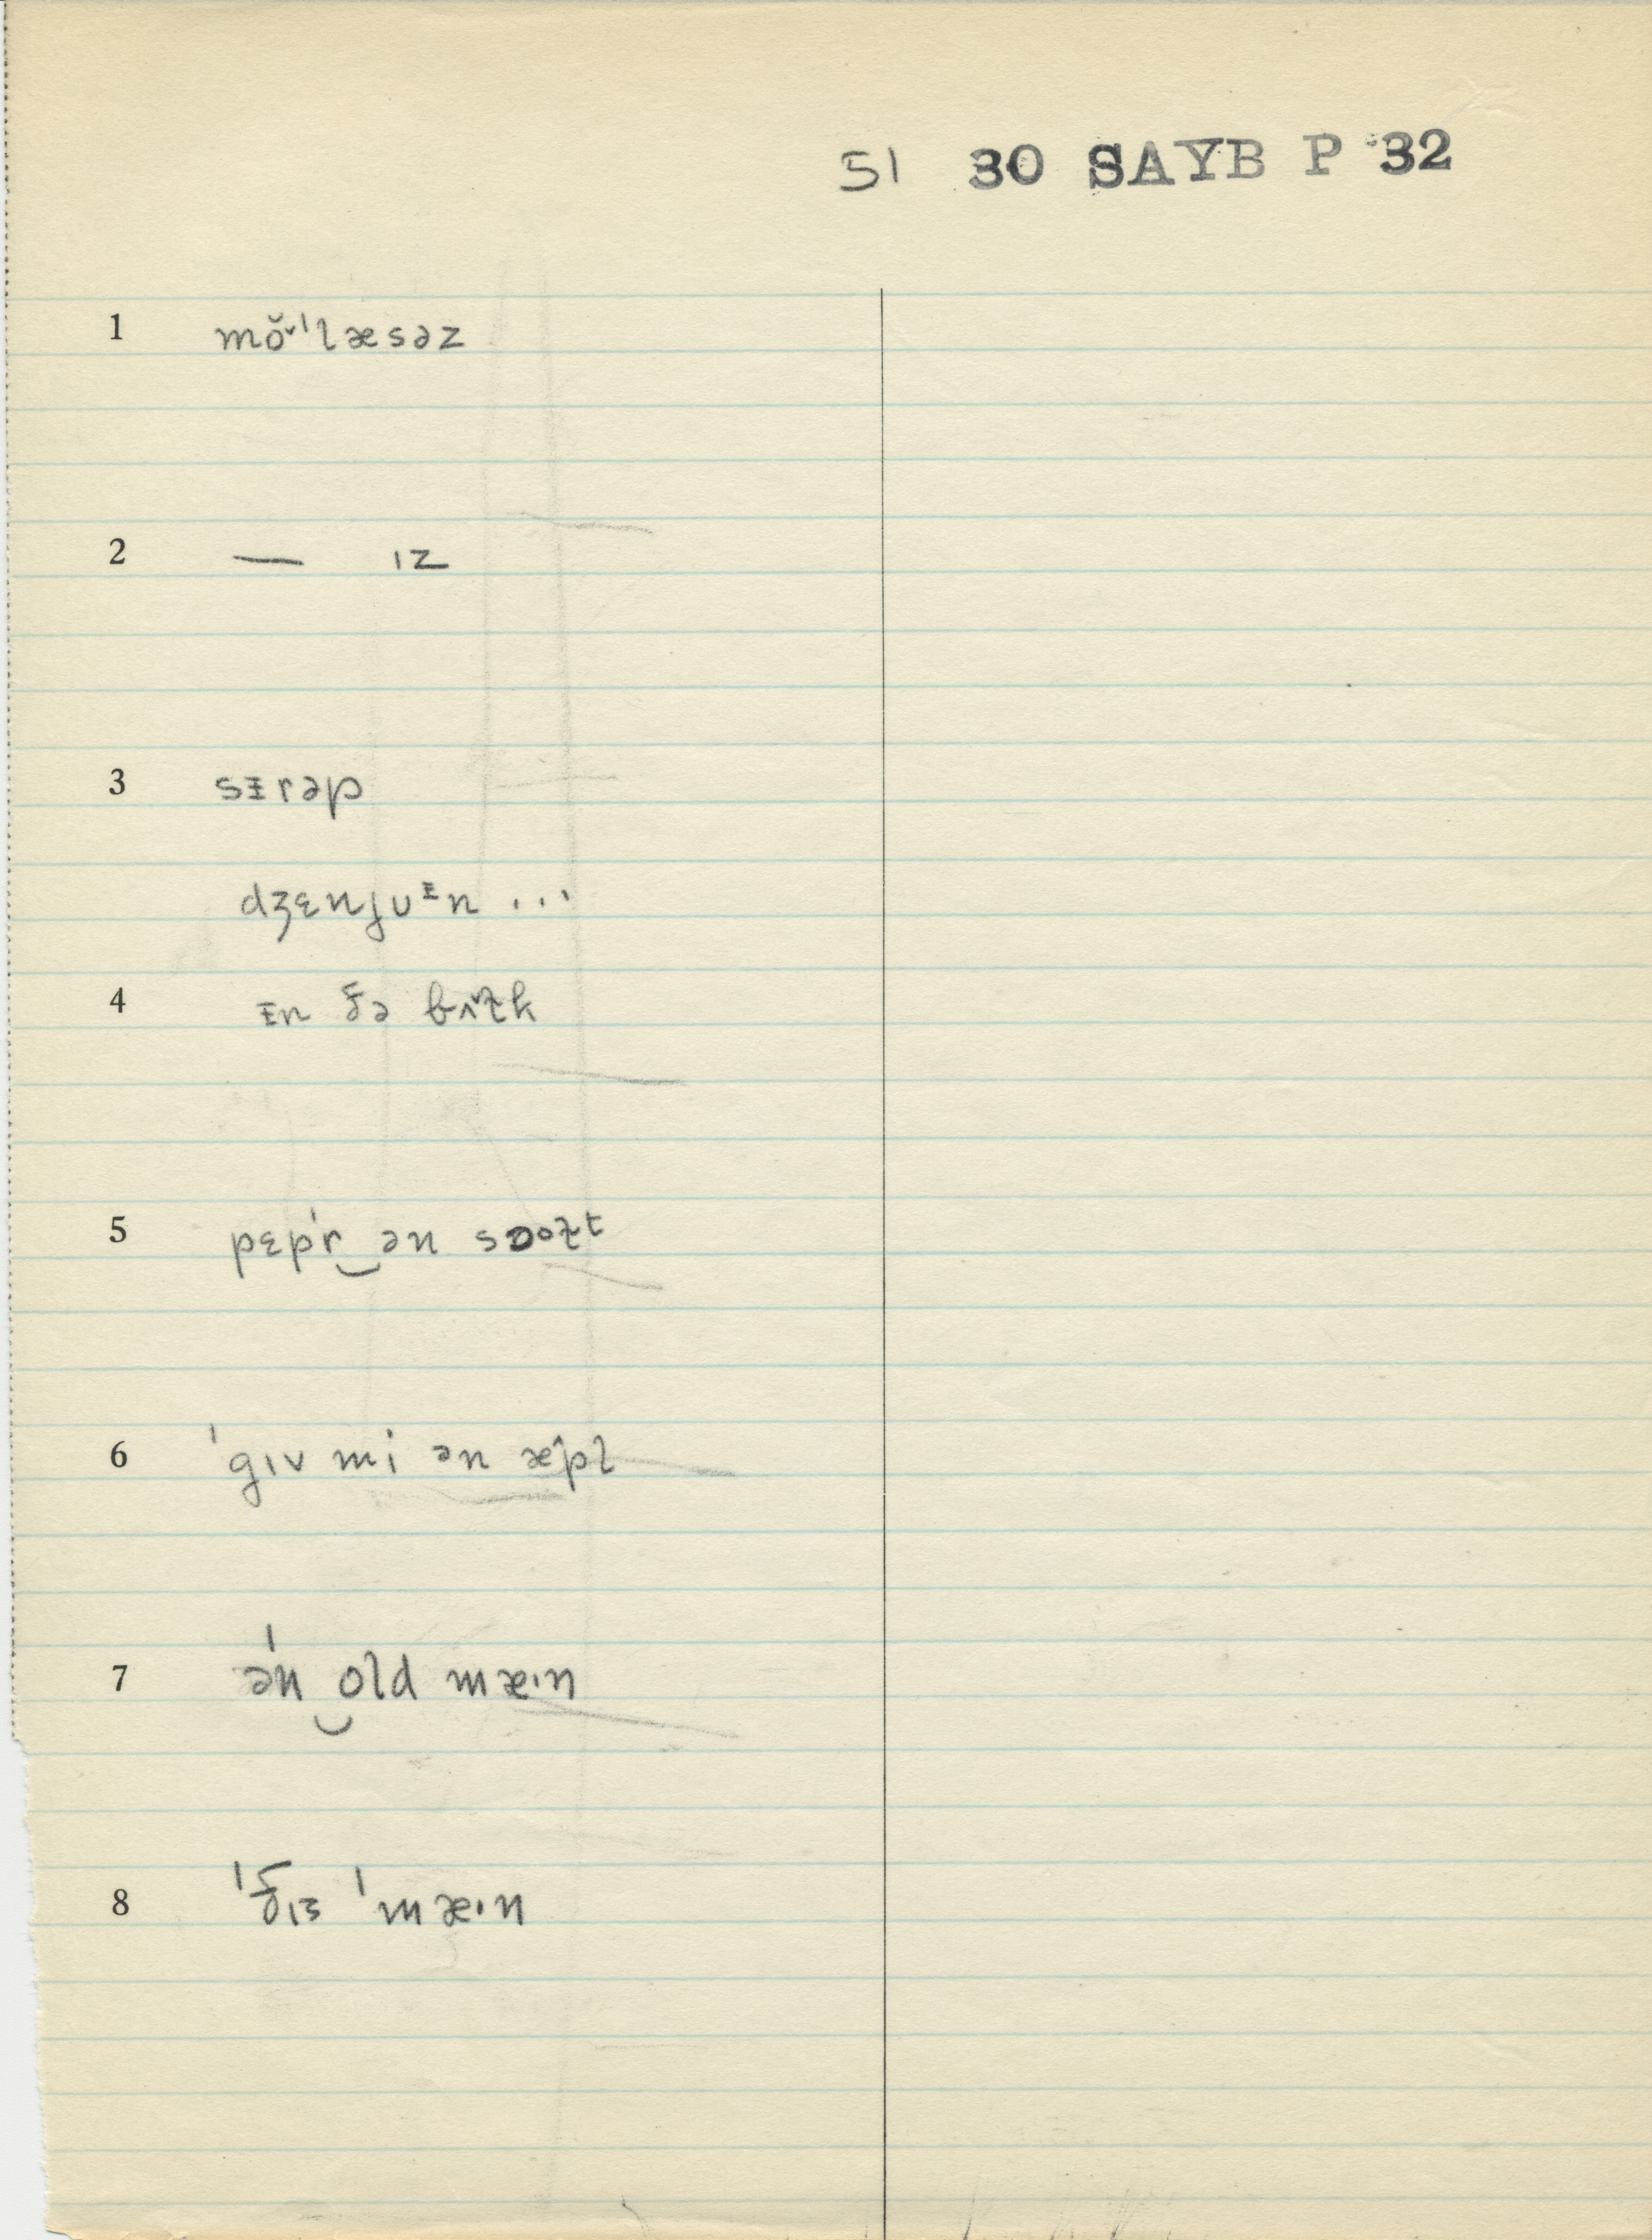 51 30 SAYB P 32
1 mŏˇˈlæsəz
2 — ɪz
3 sᵻrəp
dʒɛnjuᵻn ...
4 ᵻn ðə bʌ̌lk
5 pɛpˈr‿ən sɒoɫt
6 ˈgɪv mi ən æ̂pl
7 əˈn‿old mæ·n
8 ˈðɪs ˈmæ·n